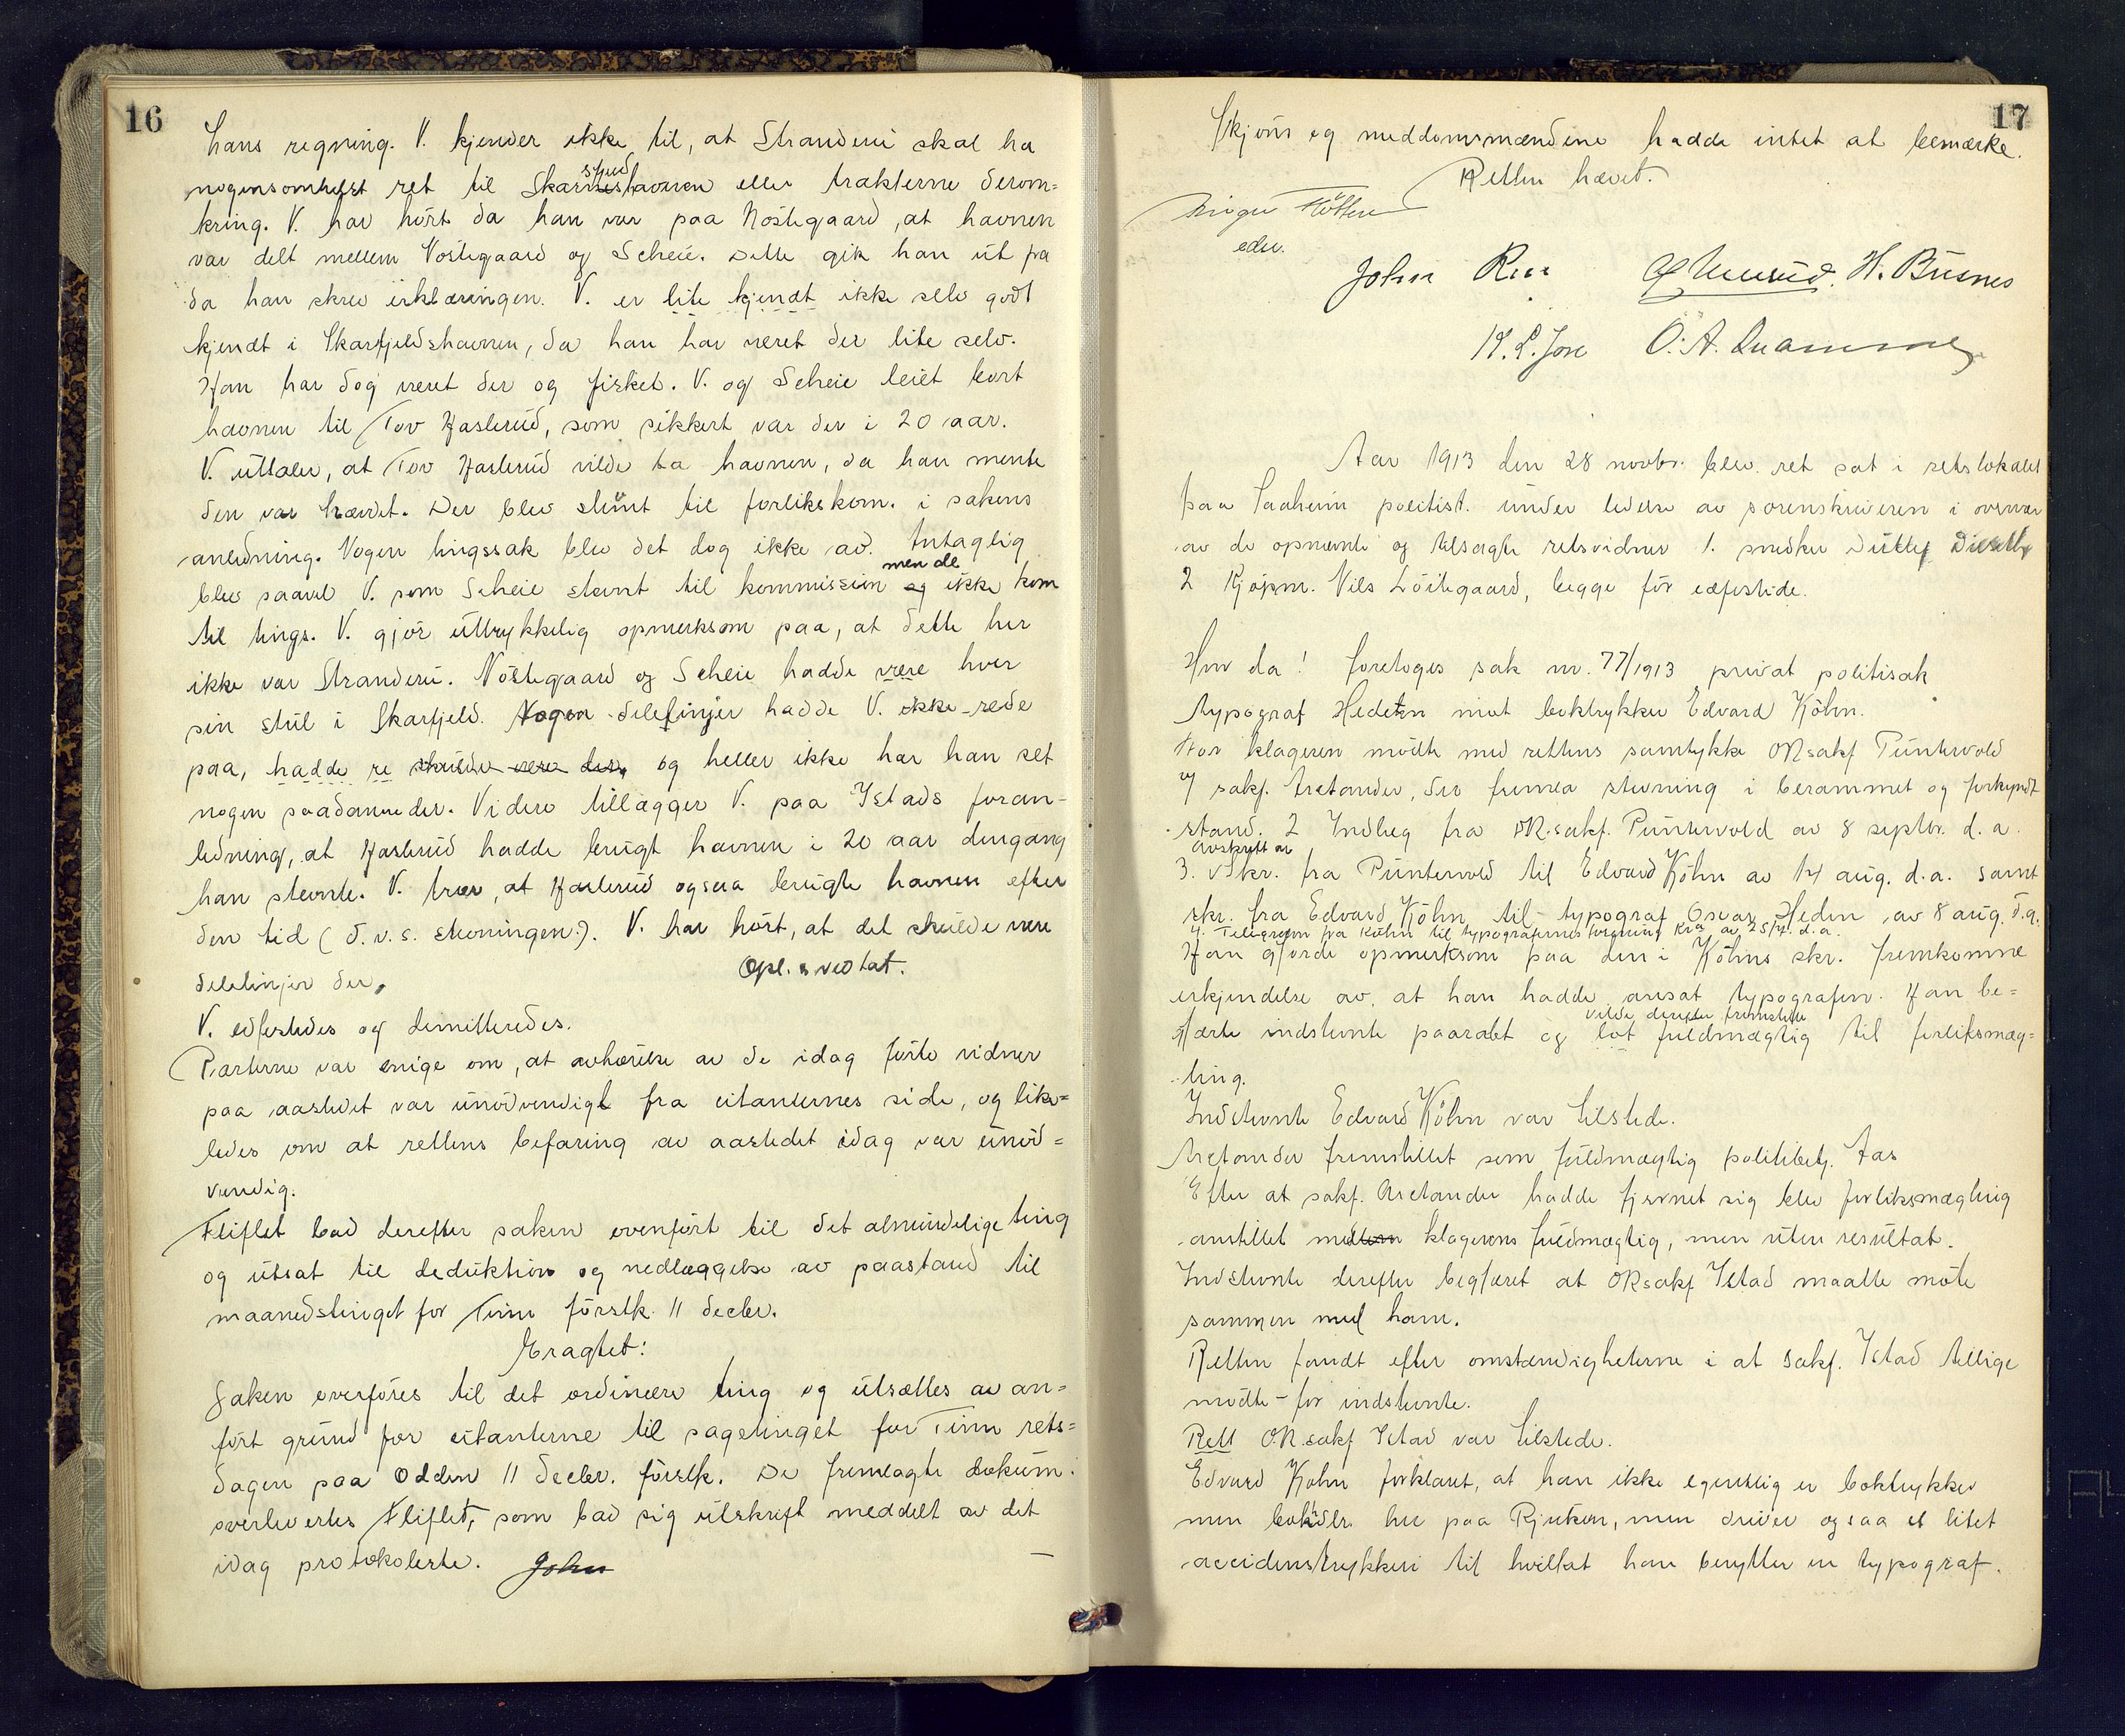 16
hans regning. V. kjender ikke til, at Stranderu skal ha
nogensomhelst ret til Skarfjeldhavnen eller trakterne derom=
kring. V. har hørt da han var paa Nøstegaard, at havnen
var delt mellem Nöstegaard og Scheie. Dette gik han ut fra
da han skrev erklæringen. V. er lite kjendt ikke selv godt
kjendt i Skarfjeldshavnen, da han har været der lite selv.
Han har dog været der og fisket. V. og Scheie leiet bort
havnen til Tov Haslerud, som sikkert var der i 20 aar.
V. uttaler, at Tov Haslerud vilde ta havnen, da han mente
den var hævdet. Der blev stevnt til forlikskom. i sakens
anledning. Nogen tingssak blev det dog ikke av. Antaglig
blev saavel V. som Scheie stevnt til kommission men de ikke kom
til tings. V. gjör uttrykkelig opmerksom paa, at dette her
ikke var Stranderu. Nöstegaard og Scheie hadde være hver
sin stul i Skarfjeld. Nogen delelinjer hadde V. ikke rede
paa, hadde re skulde være der, og heller ikke har han set
nogen saadanne der. Videre tillægger V. paa Ystads foran-
ledning, at Haslerud hadde brugt havnen i 20 aar dengang
han stevnte. V. tror, at Haslerud ogsaa brugte havnen efter
den tid (d.v.s. stevningen). V. har hört, at det skulde være
delelinjer der. Opl. & vedtat.
V. edfestedes og dimitteredes.
Parterne var enige om, at avhørelse av de idag førte vidner
paa aastedet var unödvendigt fra citanternes side, og like=
ledes om at rettens befaring av aastedet idag var unöd=
vendig.
Fliflet bad derefter saken overført til det almindelige ting
og utsat til deduktion og nedlæggelse av paastand til
maanedstinget for Tinn förstk. 11 decbr.
Eragtet:
Saken overføres til det ordinære ting og utsættes av an=
fört grund for citanterne til sagetinget for Tinn rets=
dagen paa Odden 11 decbr. förstk. De fremlagte dokum.
overlevertes Fliflet, som bad sig utskrift meddelt av det
idag protokolerte. John
17
Skjöns og meddomsmændene hadde intet at bemærke.
Retten hævet.
edsv.
John H. Busnes
O. A. Quamme
Aar 1913 den 28 novbr. blev ret sat i retslokalet
paa Saaheim politist. under ledelse av sorenskriveren i overvær
av de opnævnte og tilsagte retsvidner 1. snedker
2 Kjøpm. Nils Löitegaard, begge för edfestede.
Hvor da! foretoges sak nr. 77/1913 privat politisak
typograf Hedeen mot boktrykker Edvard Köhn.
For klageren mödte med rettens samtykke ORsakf Puntervold
v/ sakf. Arctander, der fremla stevning i berammet og forkyndt
stand. 2 Indlæg fra OR.sakf. Puntervold av 8 septbr. d.a.
3. Avskrift av skr. fra Puntervold til Edvard Köhn av 14 aug. d.a. samt
skr. fra Edvard Köhn til typograf Oscar Heden av 8 aug. d.a.
4. Telegram fra Köhn til typografernes forening Kra av 25/7. d.a.
Han gjorde opmerksom paa den i Köhns skr. fremkomne
erkjendelse av, at han hadde ansat typografen. Han be=
gjærte indstevnte paaraabt og vilde derefter fremstille lot fuldmægtig til forliksmæg=
ling.
Indstevnte Edvard Köhn var tilstede.
Arctander fremstillet som fuldmægtig politibetj. Aas
Efter at sakf. Arctander hadde fjernet sig blev forliksmægling
anstillet mellem klagerens fuldmægtig, men uten resultat.
Indstevnte derefter begjæret at ORsakf Ystad maatte møte
sammen med ham.
Retten fandt efter omstændigheterne i at sakf. Ystad tillige
mödte for indstevnte.
Rett O.R.sakf Ystad var tilstede.
Edvard Köhn forklaret, at han ikke egentlig er boktrykker
men bokhdlr. her paa Rjukan, men driver ogsaa et litet
accidenstrykkeri til hvilket han benytter en typograf.